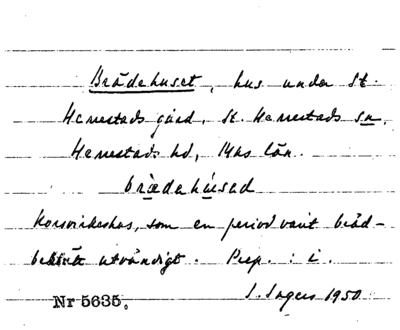 Brädehuset, hus under St.
Herrestads gård, St. Herrestads sn,
Herrestads hd, Mhs län.
bræ̀dahúsad
Korsvirkeshus, som en period varit bräd-
beklätt utvändigt. Prep. : i.
I. Ingers 1950
Nr 5635.